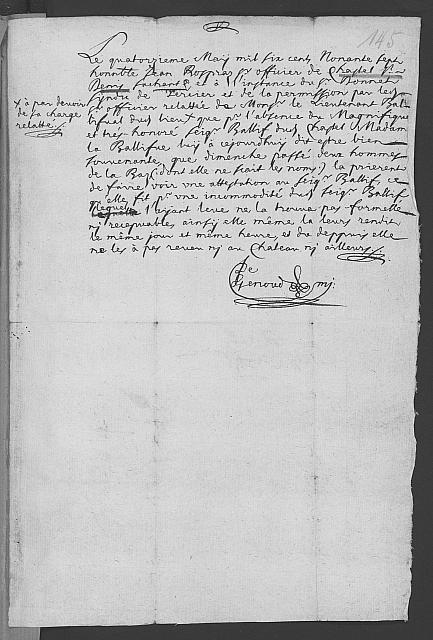 145
Le quatorzieme Maÿ mil six cents Nonante sept
honnble Jean officier de Chastel St
Denis Sachant et à l'instance du Sr Bonnet
de et de la permission par led
Sr officier relattée de Monsr le Lieutenant Bal-
lifval dud lieu que pr l'absence du Magnifique
et trés honoré seigr Ballif dud Chastel Madame
la Ballifue luÿ à ajourdhuÿ dit estre bien
souvenante que dimenche passé deux hommes
de la dont elle ne sçait les noms la prierent
de faire voir une attestation au seigr Ballif ce
elle fit pr une incommodité dud seigr Ballif
Lequel l'aÿant leue ne la trouva pas formelle
nÿ recepvable ainsÿ elle méme la leurs rendit
le méme jour et méme heure, et du despuis elle
ne les à pas reveu nÿ au Chateau nÿ ailleurs
x à par devoir
de sa charge
relatté
De
Genoud nÿ.